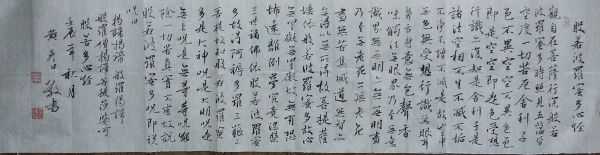 般若波羅蜜多心经
觀自在菩薩行深般若
波羅蜜多時照見五蘊皆
空度一切苦厄舍利子
色不異空空不異色色
即是空空即是色受想
行識亦復如是舍利子是
諸法空相不生不滅不垢
不淨不增不減是故空中
無色無受想行識無眼耳
鼻舌身意無色聲香
味觸法無眼界乃至無意
識界無無明亦無無明盡
乃至無老死亦無老死
盡無苦集滅道無智亦
無得以無所得故菩提薩
埵依般若波羅蜜多故心
無罣礙無罣礙故無有恐
怖遠離顛倒夢想究竟涅槃
三世諸佛依般若波羅蜜
多故得阿耨多羅三藐三
菩提故知般若波羅蜜
多是大神咒是大明咒是
無上咒是無等等咒能
除一切苦真實不虛故說
般若波羅蜜多咒即說
咒曰
揭諦揭諦 般羅揭諦
般羅僧揭諦菩提莎婆訶
般若多心经
壬辰年秋月
敬書